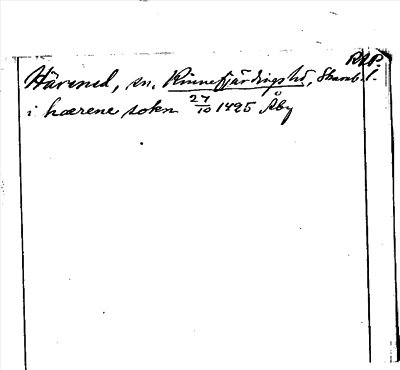 RAP.
Härened, sn, Kinnefjärdings hd, Skarab. l.
i hærene sokn 27/10 1425 Åby